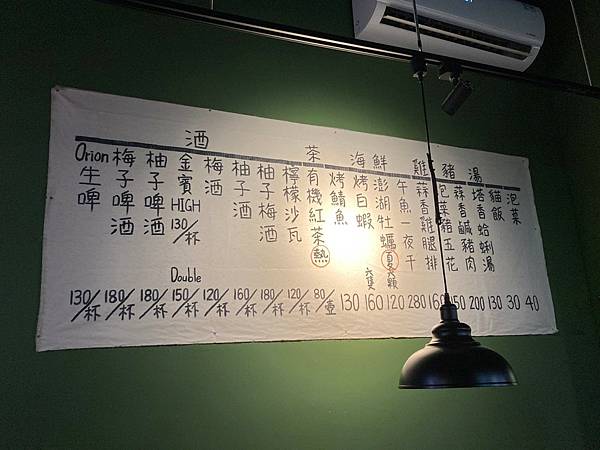 酒
茶
海鮮
雞
豬
湯
Orion生啤
130/杯
梅子啤酒
180/杯
柚子啤酒
180/杯
金賓HIGH
130/杯
Double
150/杯
梅酒
120/杯
柚子酒
160/杯
柚子梅酒
180/杯
檸檬沙瓦
120/杯
有機紅茶
熱
80/壺
烤鯖魚
130
烤白蝦
隻
160
澎湖牡蠣
夏
顆
120
午魚一夜干
280
蒜香雞腿排
160
泡菜豬五花
150
蒜香鹹豬肉
200
塔香蛤蜊湯
130
貓飯
30
泡菜
40